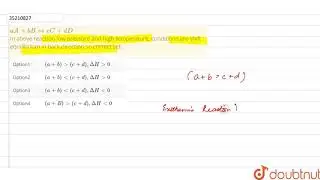 35210827
aA + bB ⇌ cC + dD
In above reaction low pressure and high temperature, conditions are shift equilibrium in back direction so correct set
Option1 (a + b) > (c + d), ΔH > 0
Option2 (a + b) < (c + d), ΔH > 0
Option3 (a + b) < (c + d), ΔH < 0
Option4 (a + B) > (c + d), ΔH < 0
(a+b > c+d)
Exothermic Reaction
doubtnut